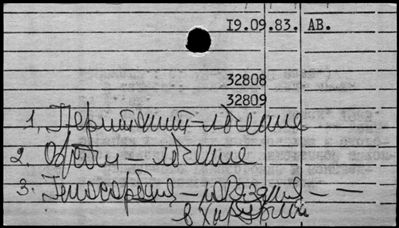 19.09.83. АВ.
32808
32809
1. Перитонит - лечение
2. - лечение
3. Гемосорбция - показания - -
в хирургии